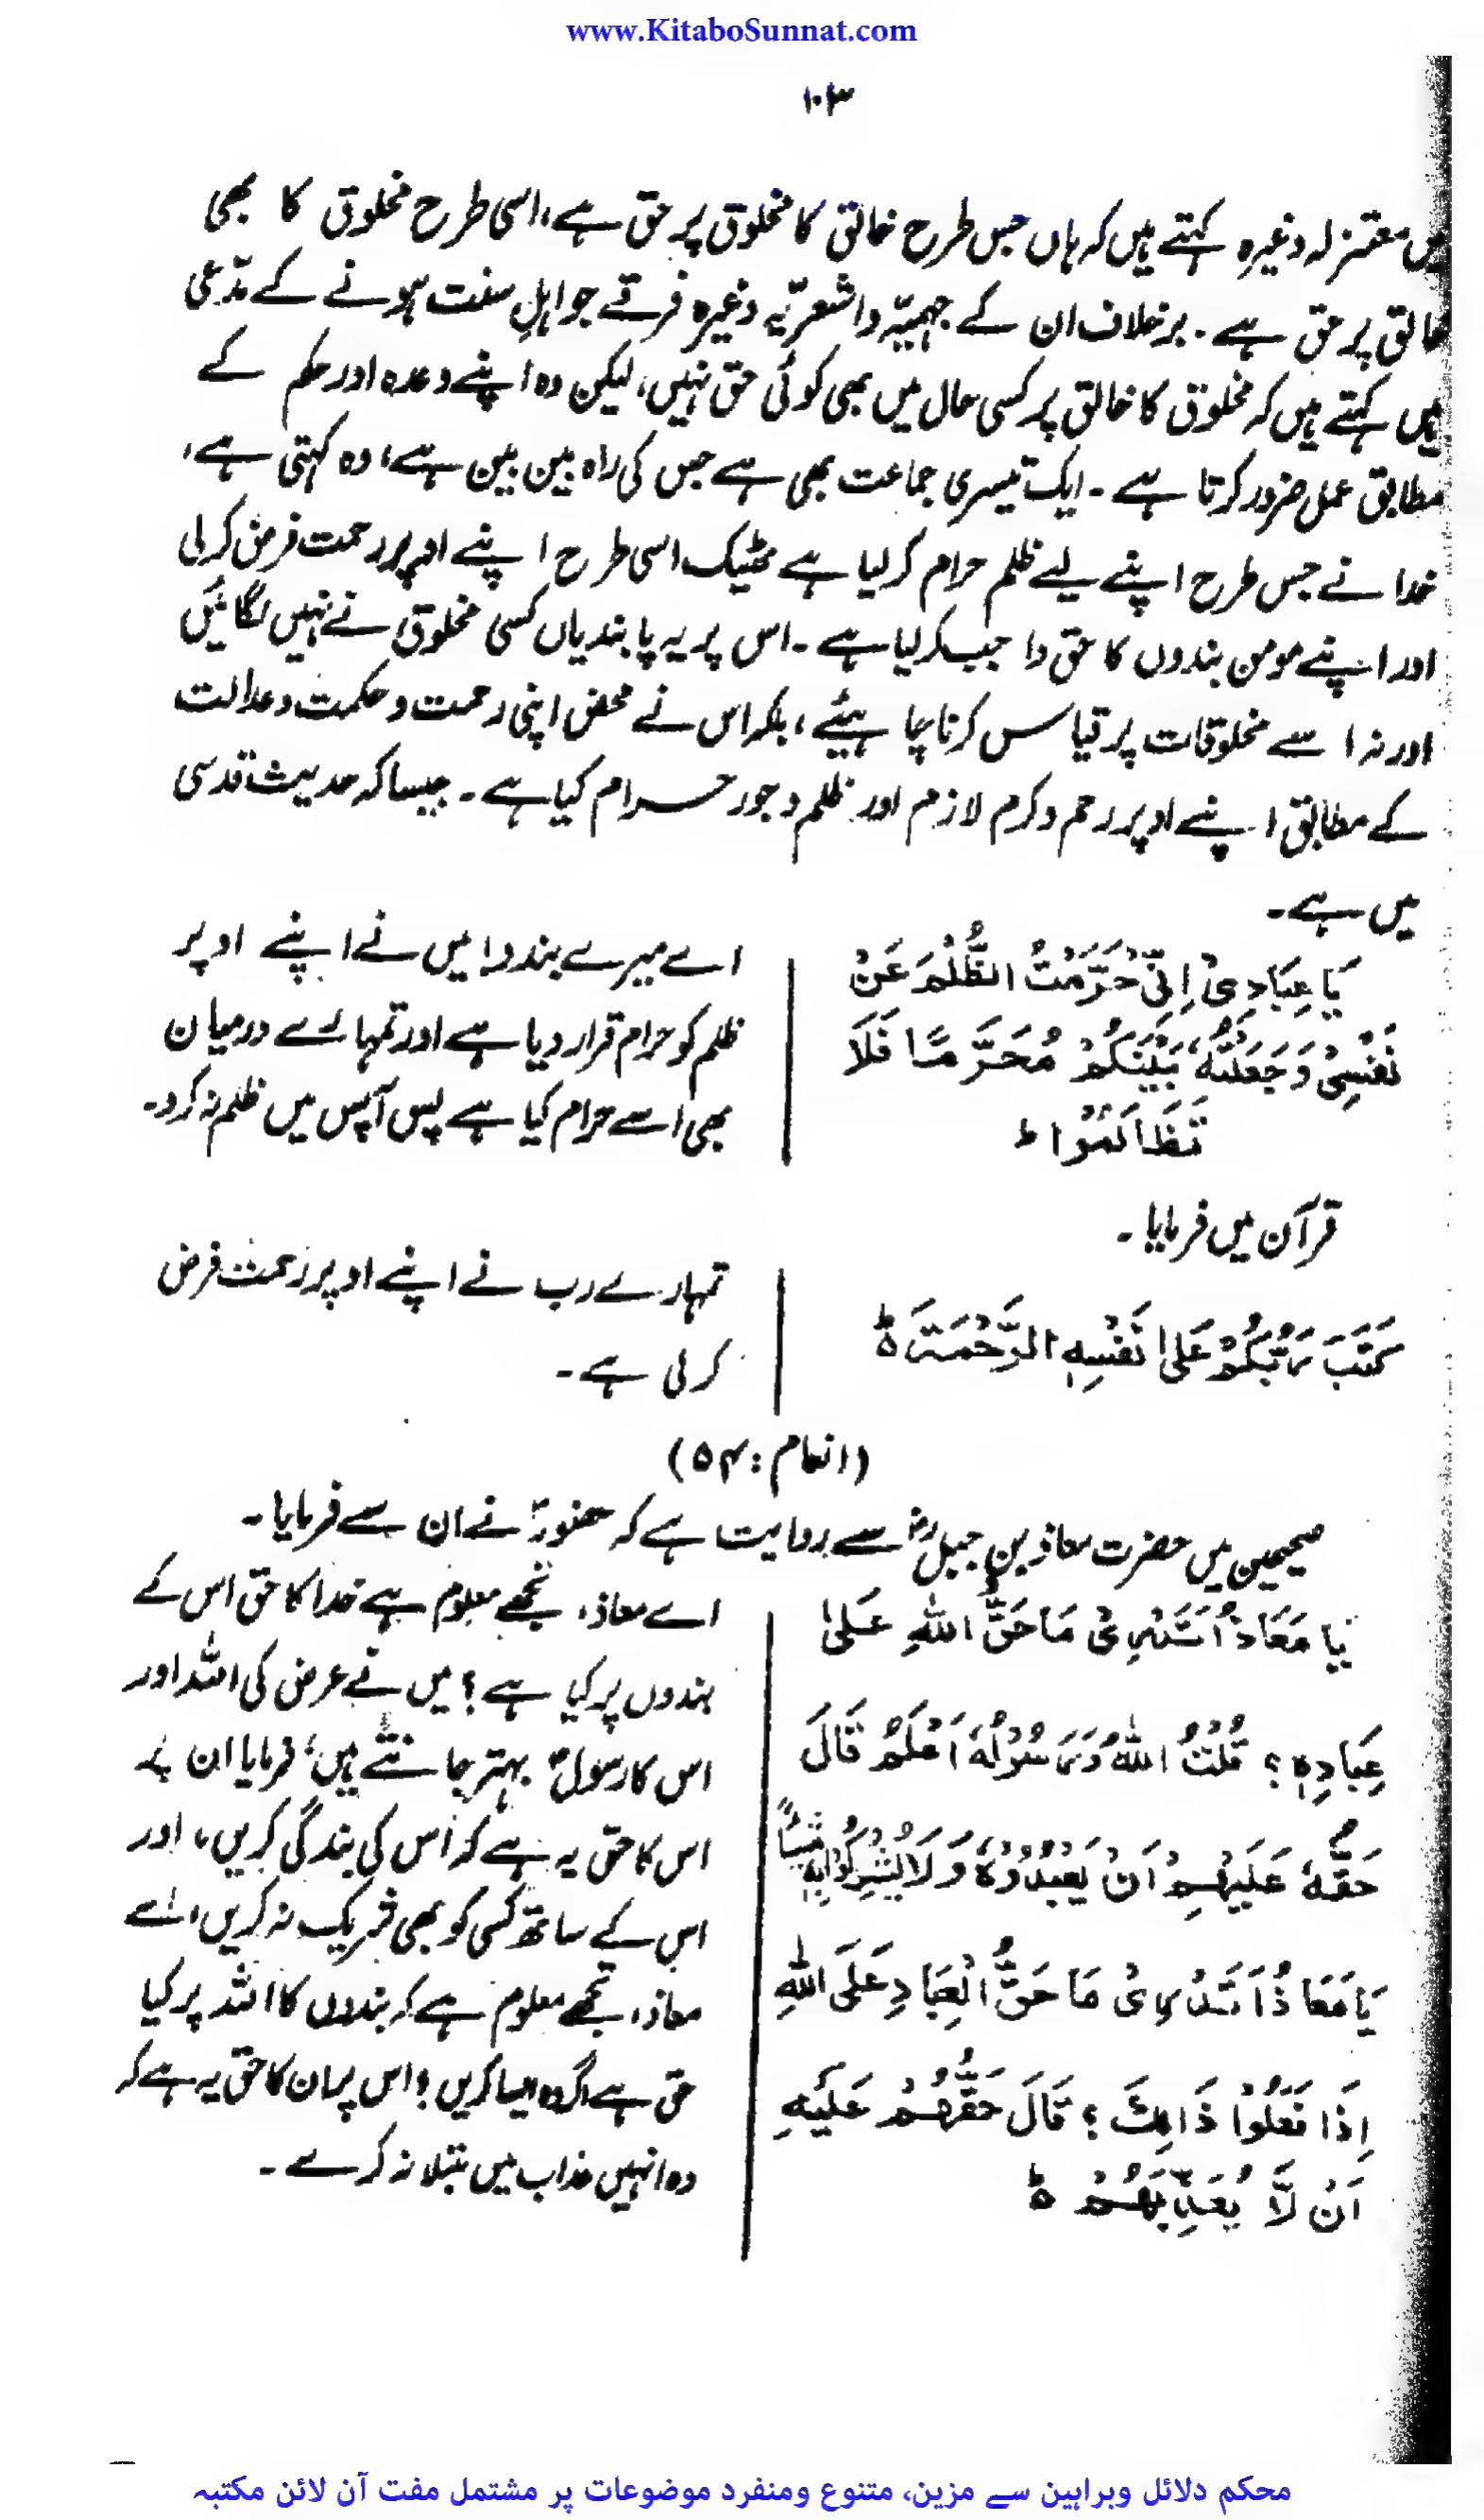 www.KitaboSunnat.com
۱۰۳
معتزلہ وغیرہ کہتے ہیں کہ ہاں جس طرح خالق کا مخلوق پر حق ہے، اسی طرح مخلوق کا بھی
خالق پر حق ہے۔ برخلاف ان کے جہمیّہ واشعریّہ وغیرہ فرقے جو اہلِ سنت ہونے کے مدّعی
ہیں کہتے ہیں کہ مخلوق کا خالق پر کسی حال میں بھی کوئی حق نہیں، لیکن وہ اپنے وعدہ اور حکم کے
مطابق عمل ضرور کرتا ہے۔ ایک تیسری جماعت بھی ہے جس کی راہ بین بین ہے، وہ کہتی ہے،
خدا نے جس طرح اپنے لیے ظلم حرام کرلیا ہے ٹھیک اسی طرح اپنے اوپر رحمت فرض کرلی
اور اپنے مومن بندوں کا حق واجب کرلیا ہے۔ اس پر یہ پابندیاں کسی مخلوق نے نہیں لگائیں
اور نہ اسے مخلوقات پر قیاس کرنا چاہیئے، بلکہ اس نے محض اپنی رحمت وحکمت وعدالت
کے مطابق اپنے اوپر رحم وکرم لازم اور ظلم وجور حرام کیا ہے۔ جیسا کہ حدیث قدسی
میں ہے۔
يَا عِبَادِيْ اِنِّيْ حَرَّمْتُ الظُّلْمَ عَنْ
نَفْسِيْ وَجَعَلْتُهٗ بَيْنَكُمْ مُحَرَّمًا فَلَا
تَظَالَمُوْا ط
اے میرے بندو! میں نے اپنے اوپر
ظلم کو حرام قرار دیا ہے اور تمہارے درمیان
بھی اسے حرام کیا ہے پس آپس میں ظلم نہ کرو۔
قرآن میں فرمایا۔
كَتَبَ رَبُّكُمْ عَلٰى نَفْسِهِ الرَّحْمَةَ ط
تمہارے رب نے اپنے اوپر رحمت فرض
کرلی ہے۔
(انعام: ۵۴)
صحیحین میں حضرت معاذ بن جبلؓ سے روایت ہے کہ حضورؐ نے ان سے فرمایا۔
يَا مَعَاذُ اَتَدْرِيْ مَا حَقُّ اللهِ عَلٰى
عِبَادِهٖ؟ قُلْتُ اللهُ وَرَسُوْلُهٗ اَعْلَمُ قَالَ
حَقُّهٗ عَلَيْهِمْ اَنْ يَعْبُدُوْهُ وَلَا يُشْرِكُوْا بِهٖ شَيْئًا
يَا مَعَاذُ اَتَدْرِيْ مَا حَقُّ الْعِبَادِ عَلَى اللهِ
اِذَا فَعَلُوْا ذَالِكَ؟ قَالَ حَقُّهُمْ عَلَيْهِ
اَنْ لَّا يُعَذِّبَهُمْ ط
اے معاذ، تجھے معلوم ہے خدا کا حق اس کے
بندوں پر کیا ہے؟ میں نے عرض کی اللہ اور
اس کا رسولؐ بہتر جانتے ہیں، فرمایا ان پر
اس کا حق یہ ہے کہ اس کی بندگی کریں، اور
اس کے ساتھ کسی کو بھی شریک نہ کریں، اے
معاذ، تجھے معلوم ہے کہ بندوں کا اللہ پر کیا
حق ہے اگر وہ ایسا کریں؟ اس پر ان کا حق یہ ہے کہ
وہ انہیں عذاب میں مبتلا نہ کرے۔
محکم دلائل وبراہین سے مزین، متنوع ومنفرد موضوعات پر مشتمل مفت آن لائن مکتبہ